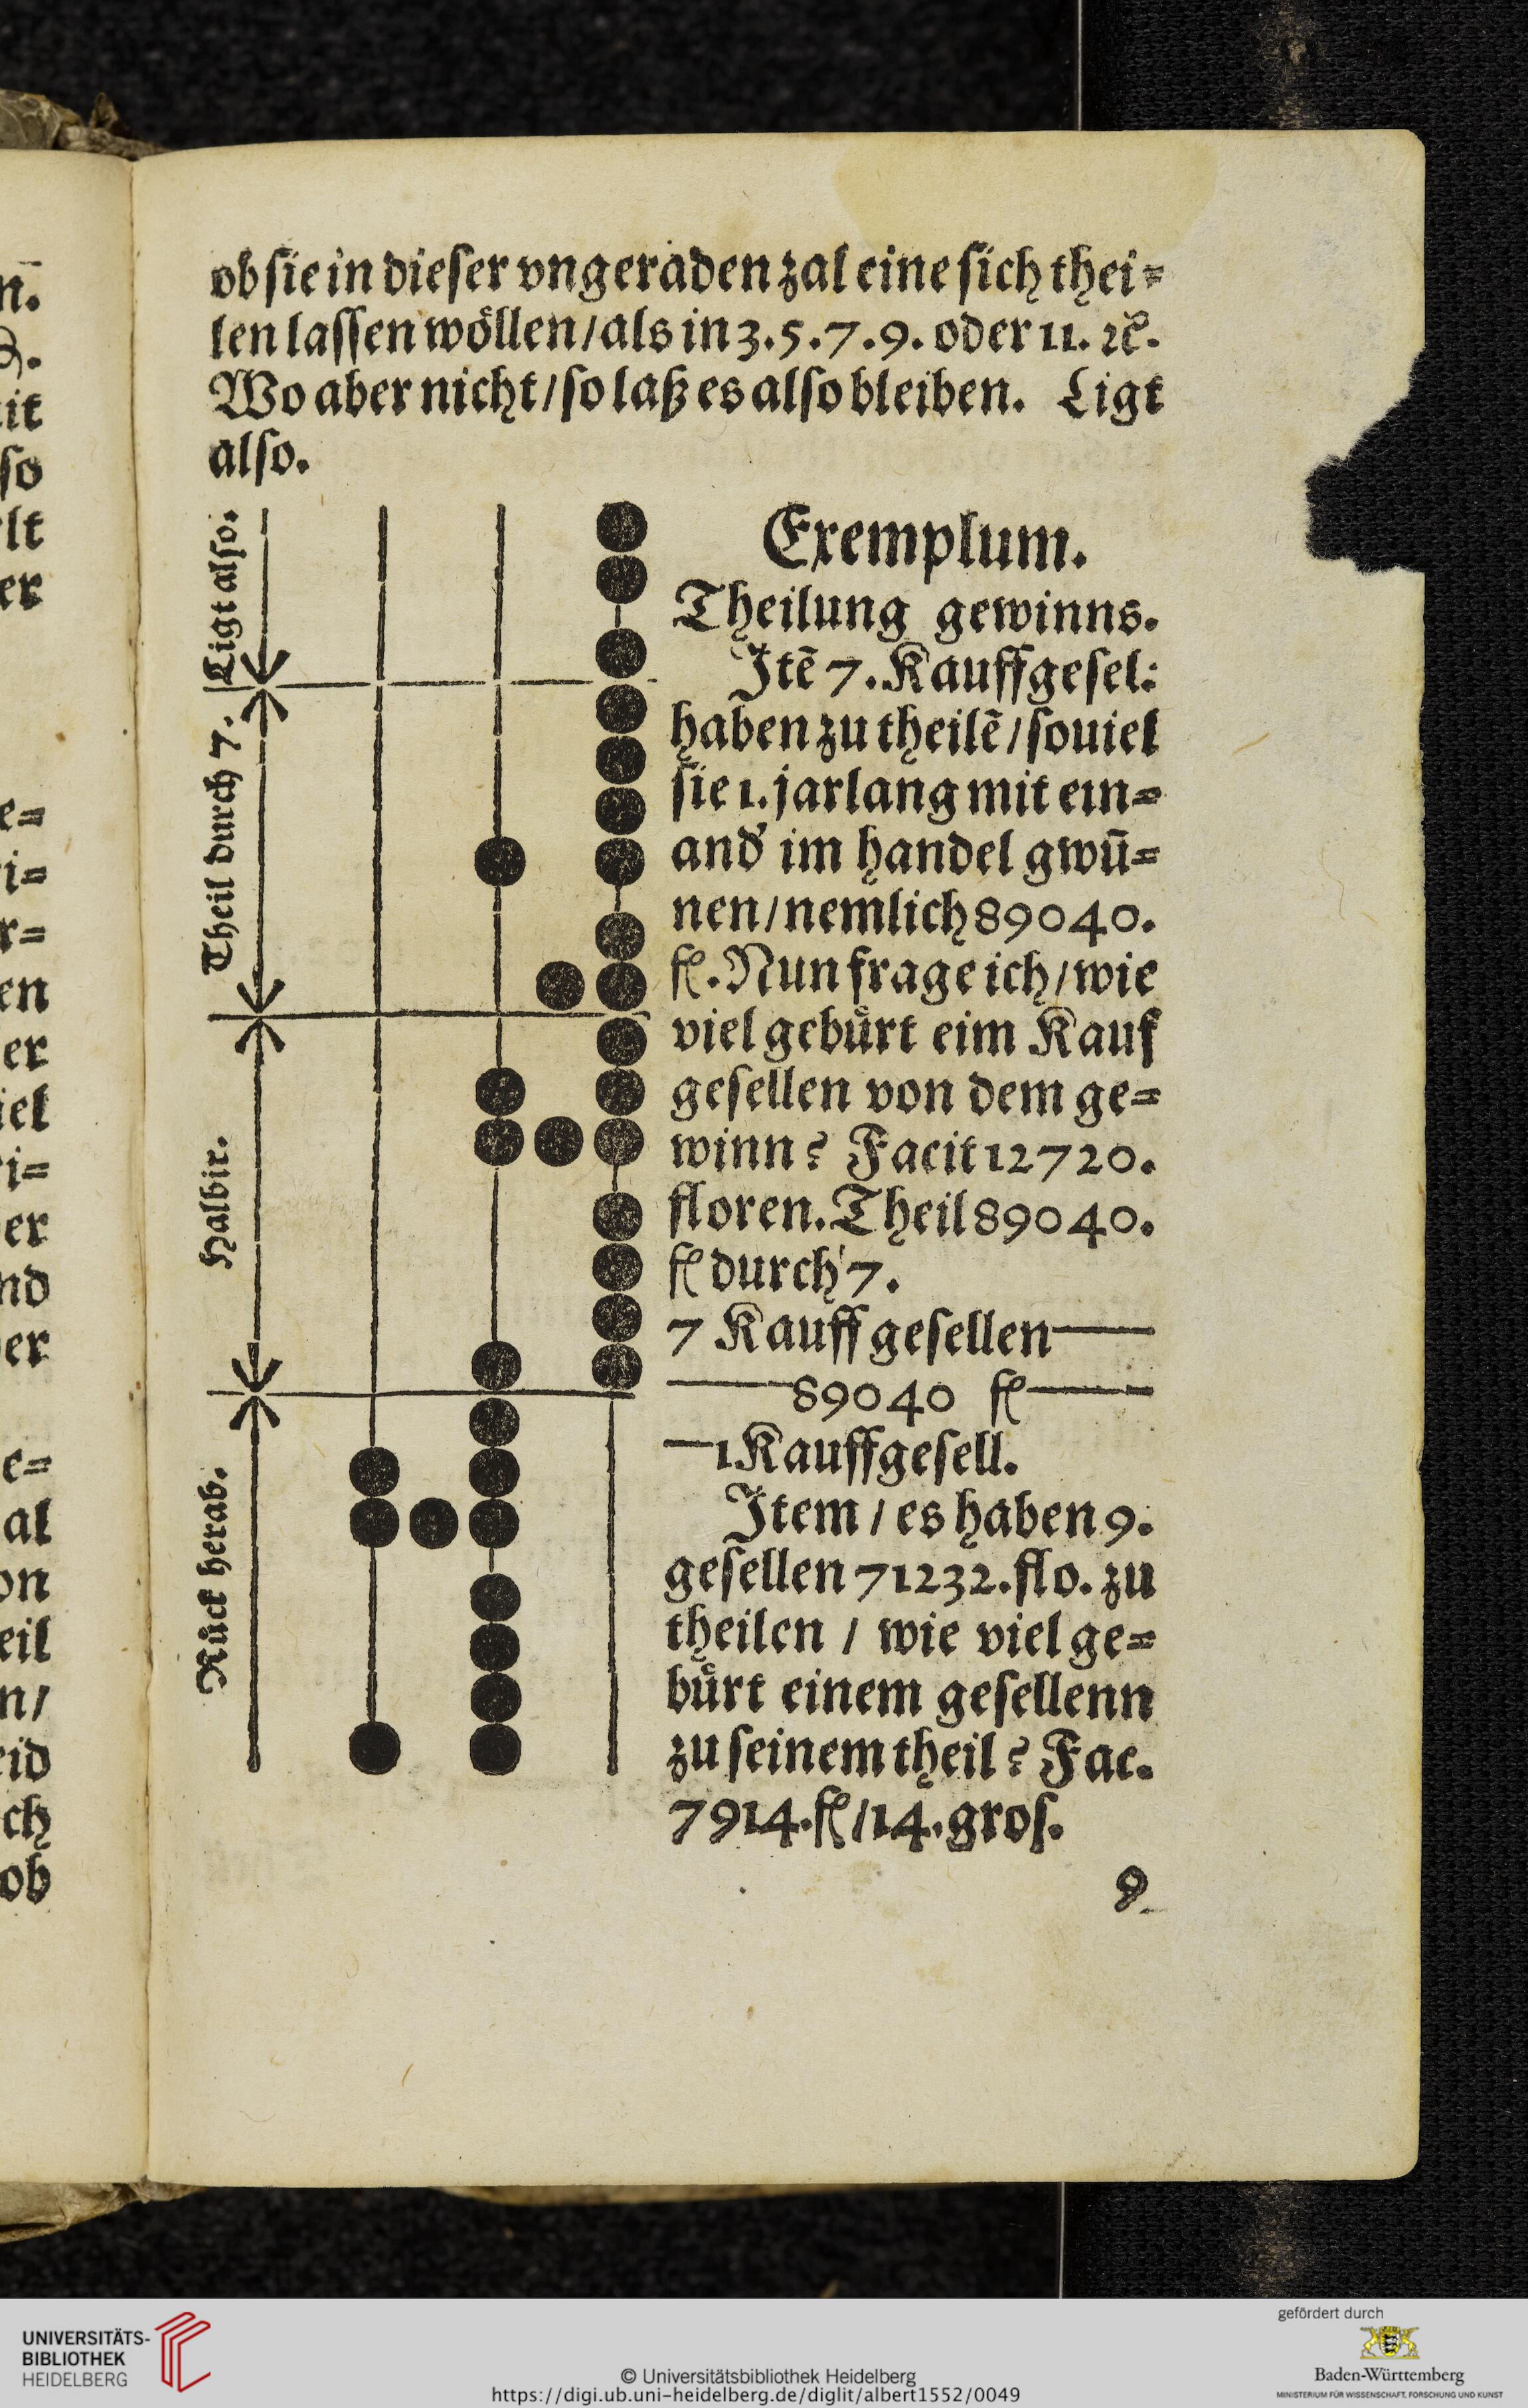 ob sie in dieser vngeraden zal eine sich thei⸗
len lassen wöllen/als in 3.5.7.9. oder 11. ꝛc.
Wo aber nicht/so laß es also bleiben. Ligt
also.
Ligt also.
Theil durch 7.
Halbir.
Růck herab.
Exemplum.
Theilung gewinns.
Jtē 7. Kauffgesel:
haben zu theilē/souiel
sie 1. jar lang mit ein⸗
and' im handel gwū⸗
nen/nemlich 89040.
fl. Nun frage ich/wie
viel gebůrt eim Kauf
gesellen von dem ge⸗
winn? Facit 12720.
floren. Theil 89040.
fl durch 7.
7 Kauff gesellen——
——89040 fl——
—1 Kauffgesell.
Jtem/es haben 9.
gesellen 71232. flo. zu
theilen / wie viel ge⸗
bůrt einem gesellenn
zu seinem theil? Fac.
7914. fl/14. gros.
9
n.
it
so
lt
er
e⸗
i⸗
r⸗
en
er
iel
i⸗
er
nd
er
e⸗
al
on
eil
n/
eid
ch
ob
UNIVERSITÄTS-
BIBLIOTHEK
HEIDELBERG
© Universitätsbibliothek Heidelberg
https://digi.ub.uni-heidelberg.de/diglit/albert1552/0049
gefördert durch
Baden-Württemberg
MINISTERIUM FÜR WISSENSCHAFT, FORSCHUNG UND KUNST